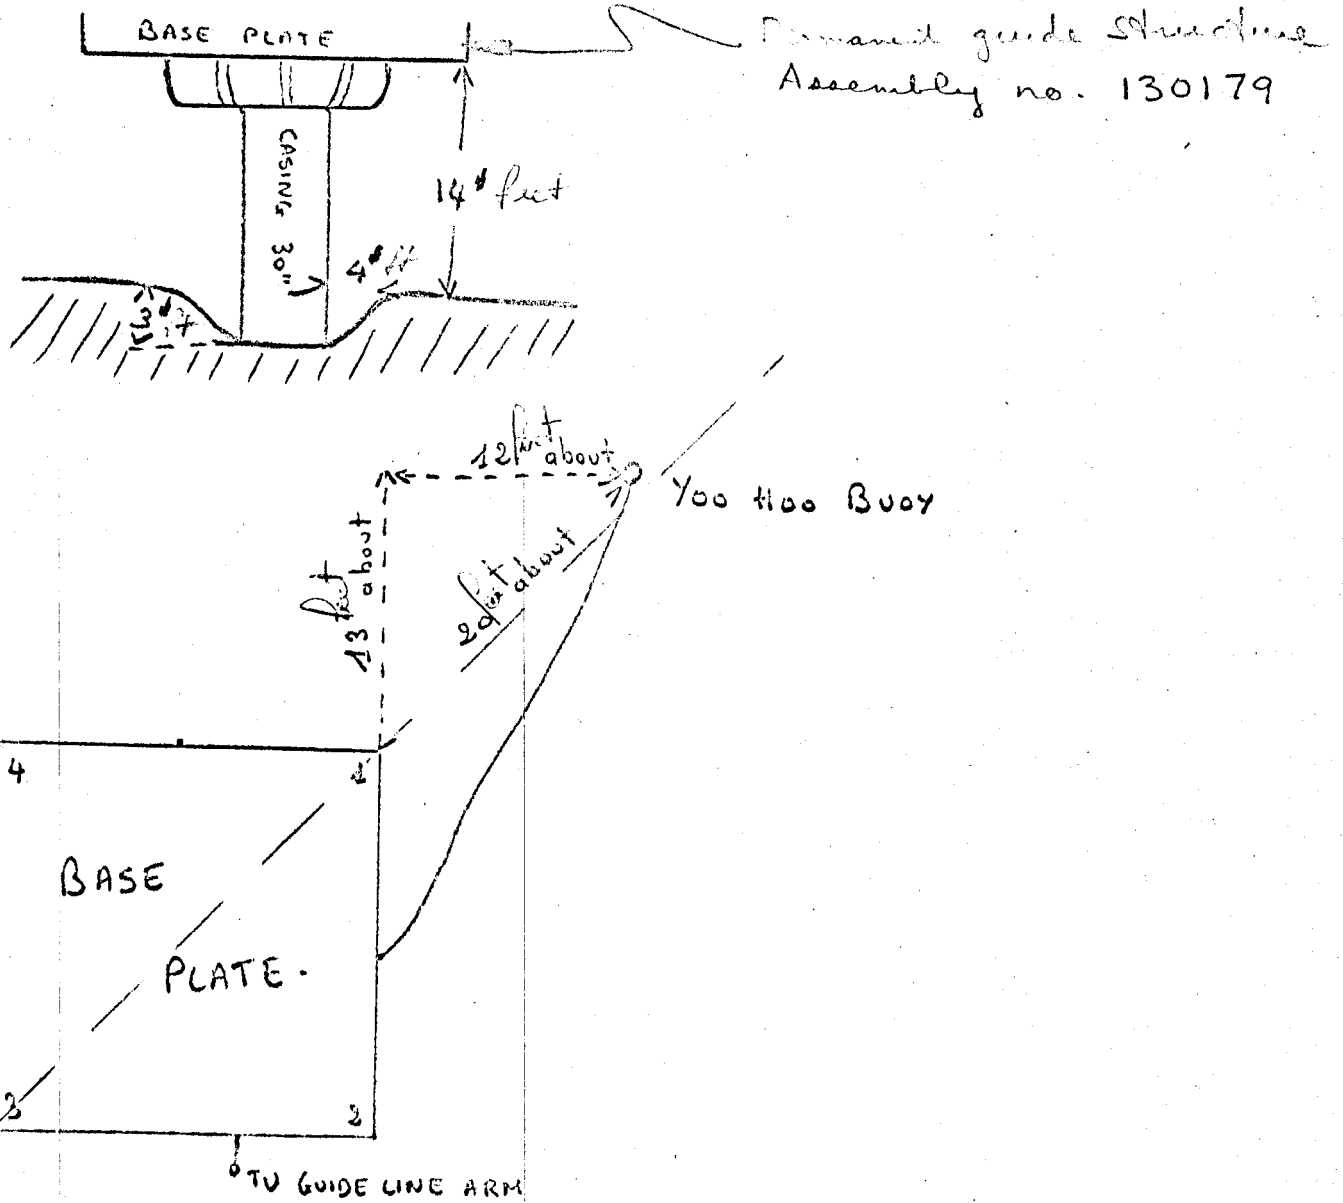 BASE PLATE
Permanent guide structure
Assembly no. 130179
CASING 30"
14 feet
4 ft
3 ft
12 feet about
YOO HOO BUOY
13 feet about
20 feet about
4
1
BASE
PLATE.
3
2
TV GUIDE LINE ARM